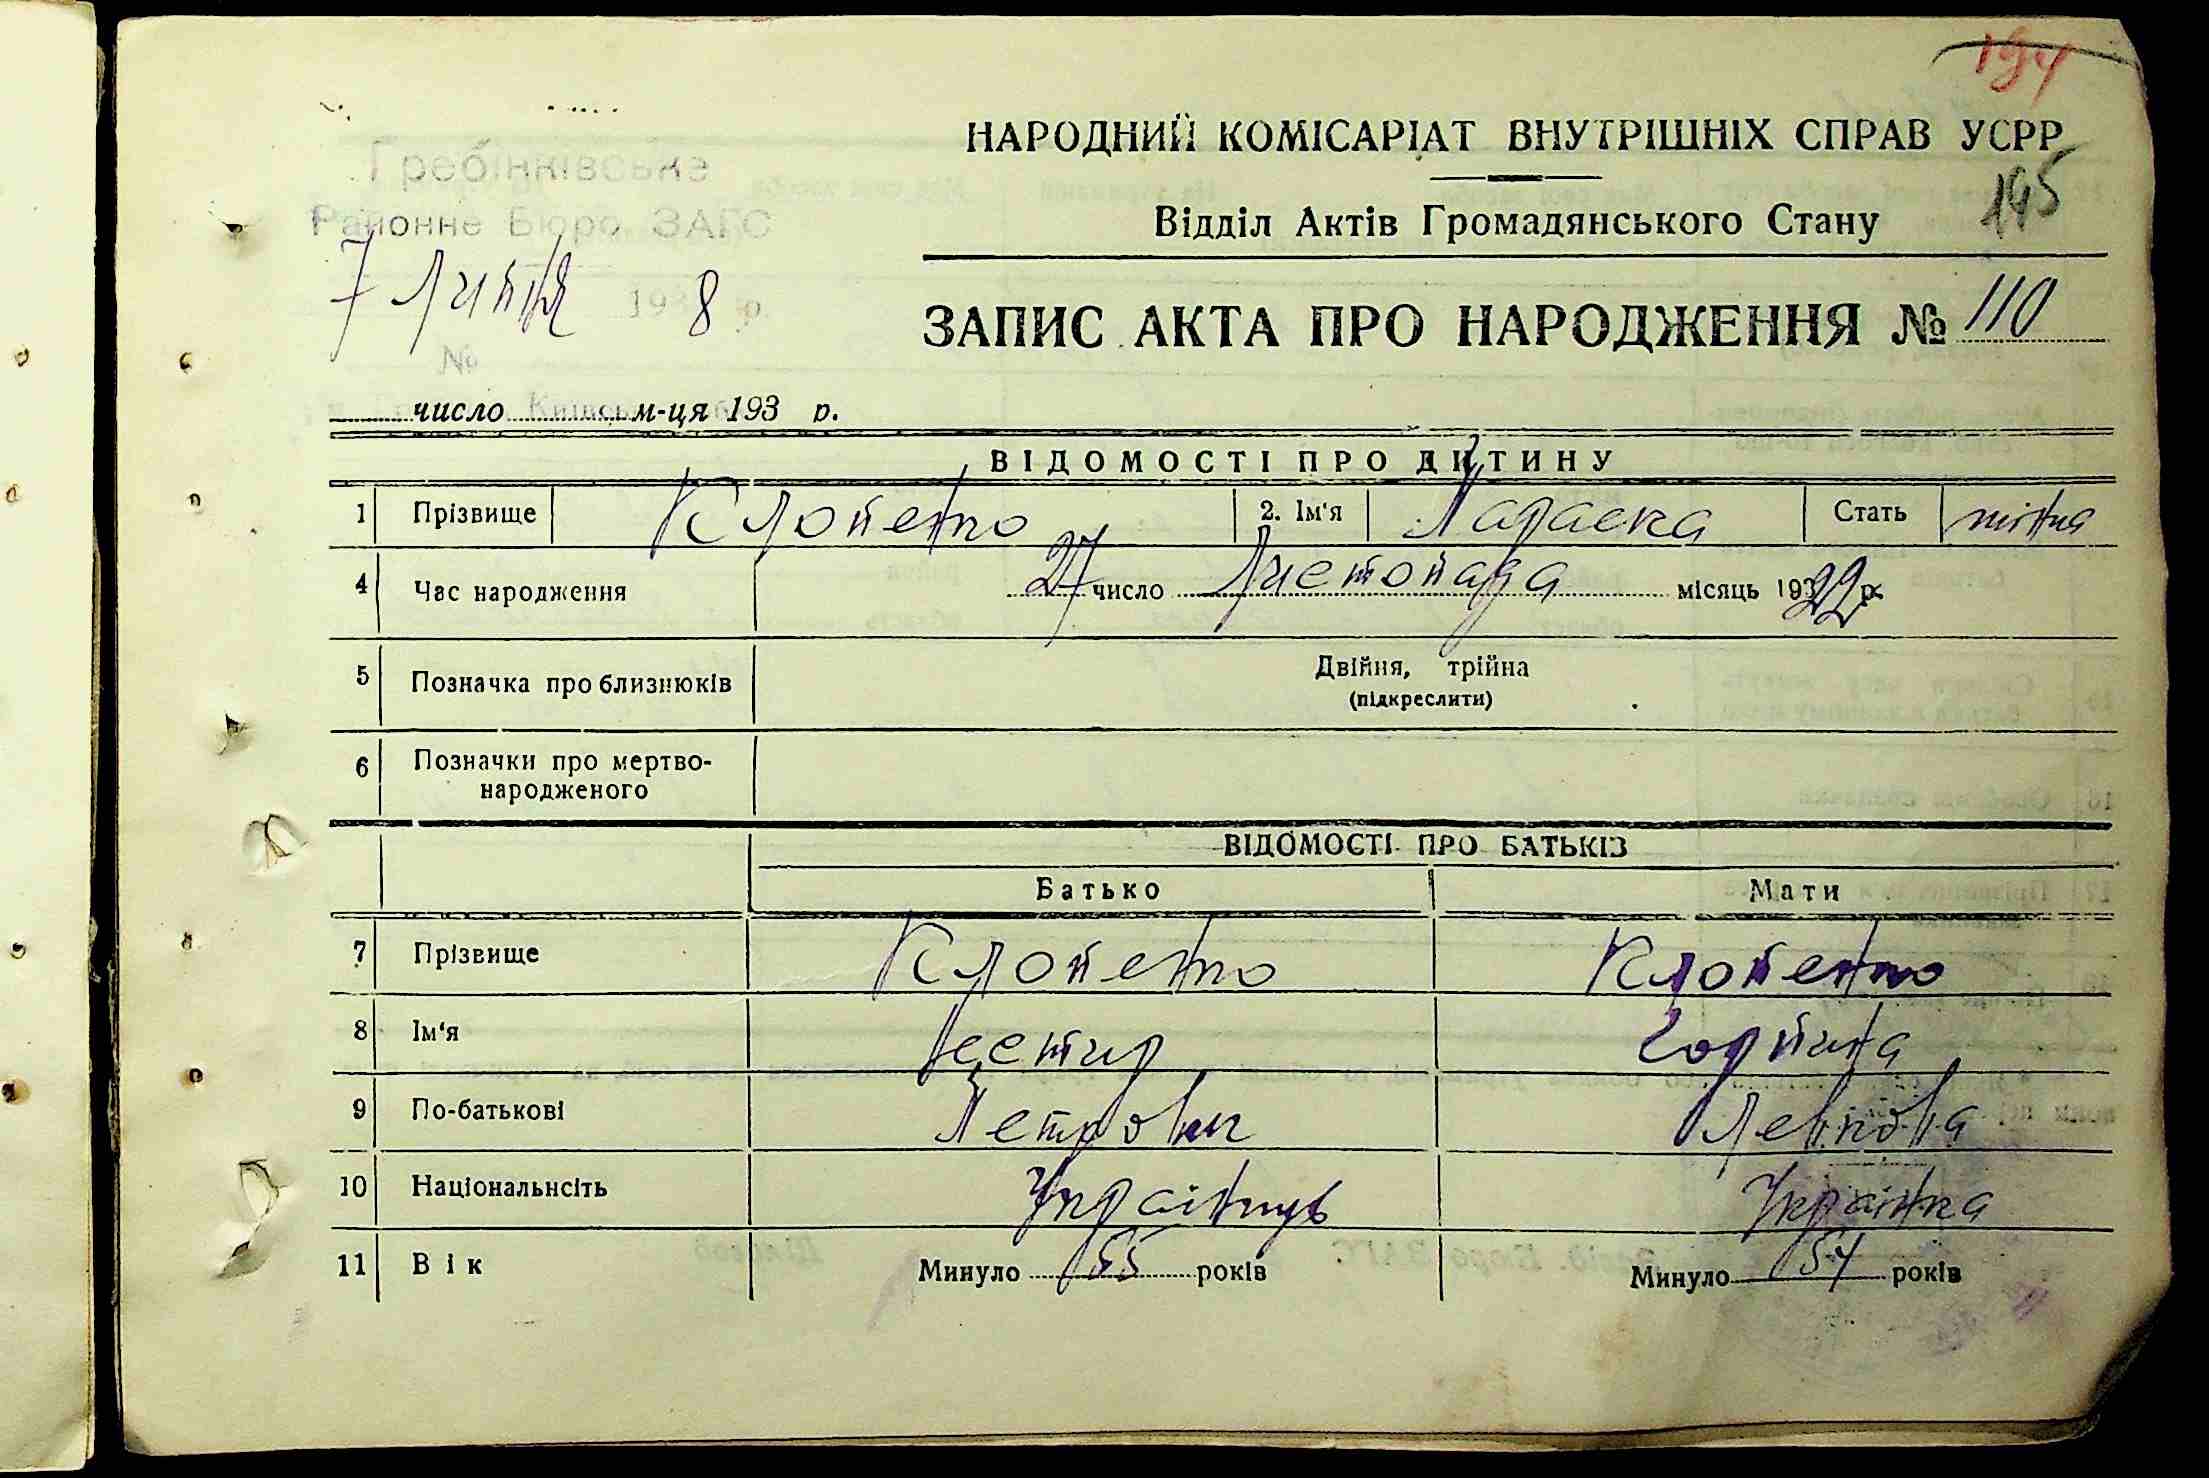 194
НАРОДНИЙ КОМІСАРІАТ ВНУТРІШНІХ СПРАВ УСРР
145
Відділ Актів Громадянського Стану
Гребінківське
Районне Бюро ЗАГС
7 липня 1938 р.
№
ЗАПИС АКТА ПРО НАРОДЖЕННЯ № 110
число м-ця 193 р.
ВІДОМОСТІ ПРО ДИТИНУ
1 Прізвище Клопенко 2. Ім'я Параска Стать жіноча
4 Час народження 27 число Листопада місяць 1922 р.
5 Позначка про близнюків Двійня, трійна
(підкреслити)
6 Позначки про мертво-
народженого
ВІДОМОСТІ ПРО БАТЬКІВ
Батько Мати
7 Прізвище Клопенко Клопенко
8 Ім'я Нестир Горпина
9 По-батькові Петрович Левковна
10 Національнсіть Українець Українка
11 Вік Минуло 55 років Минуло 54 років